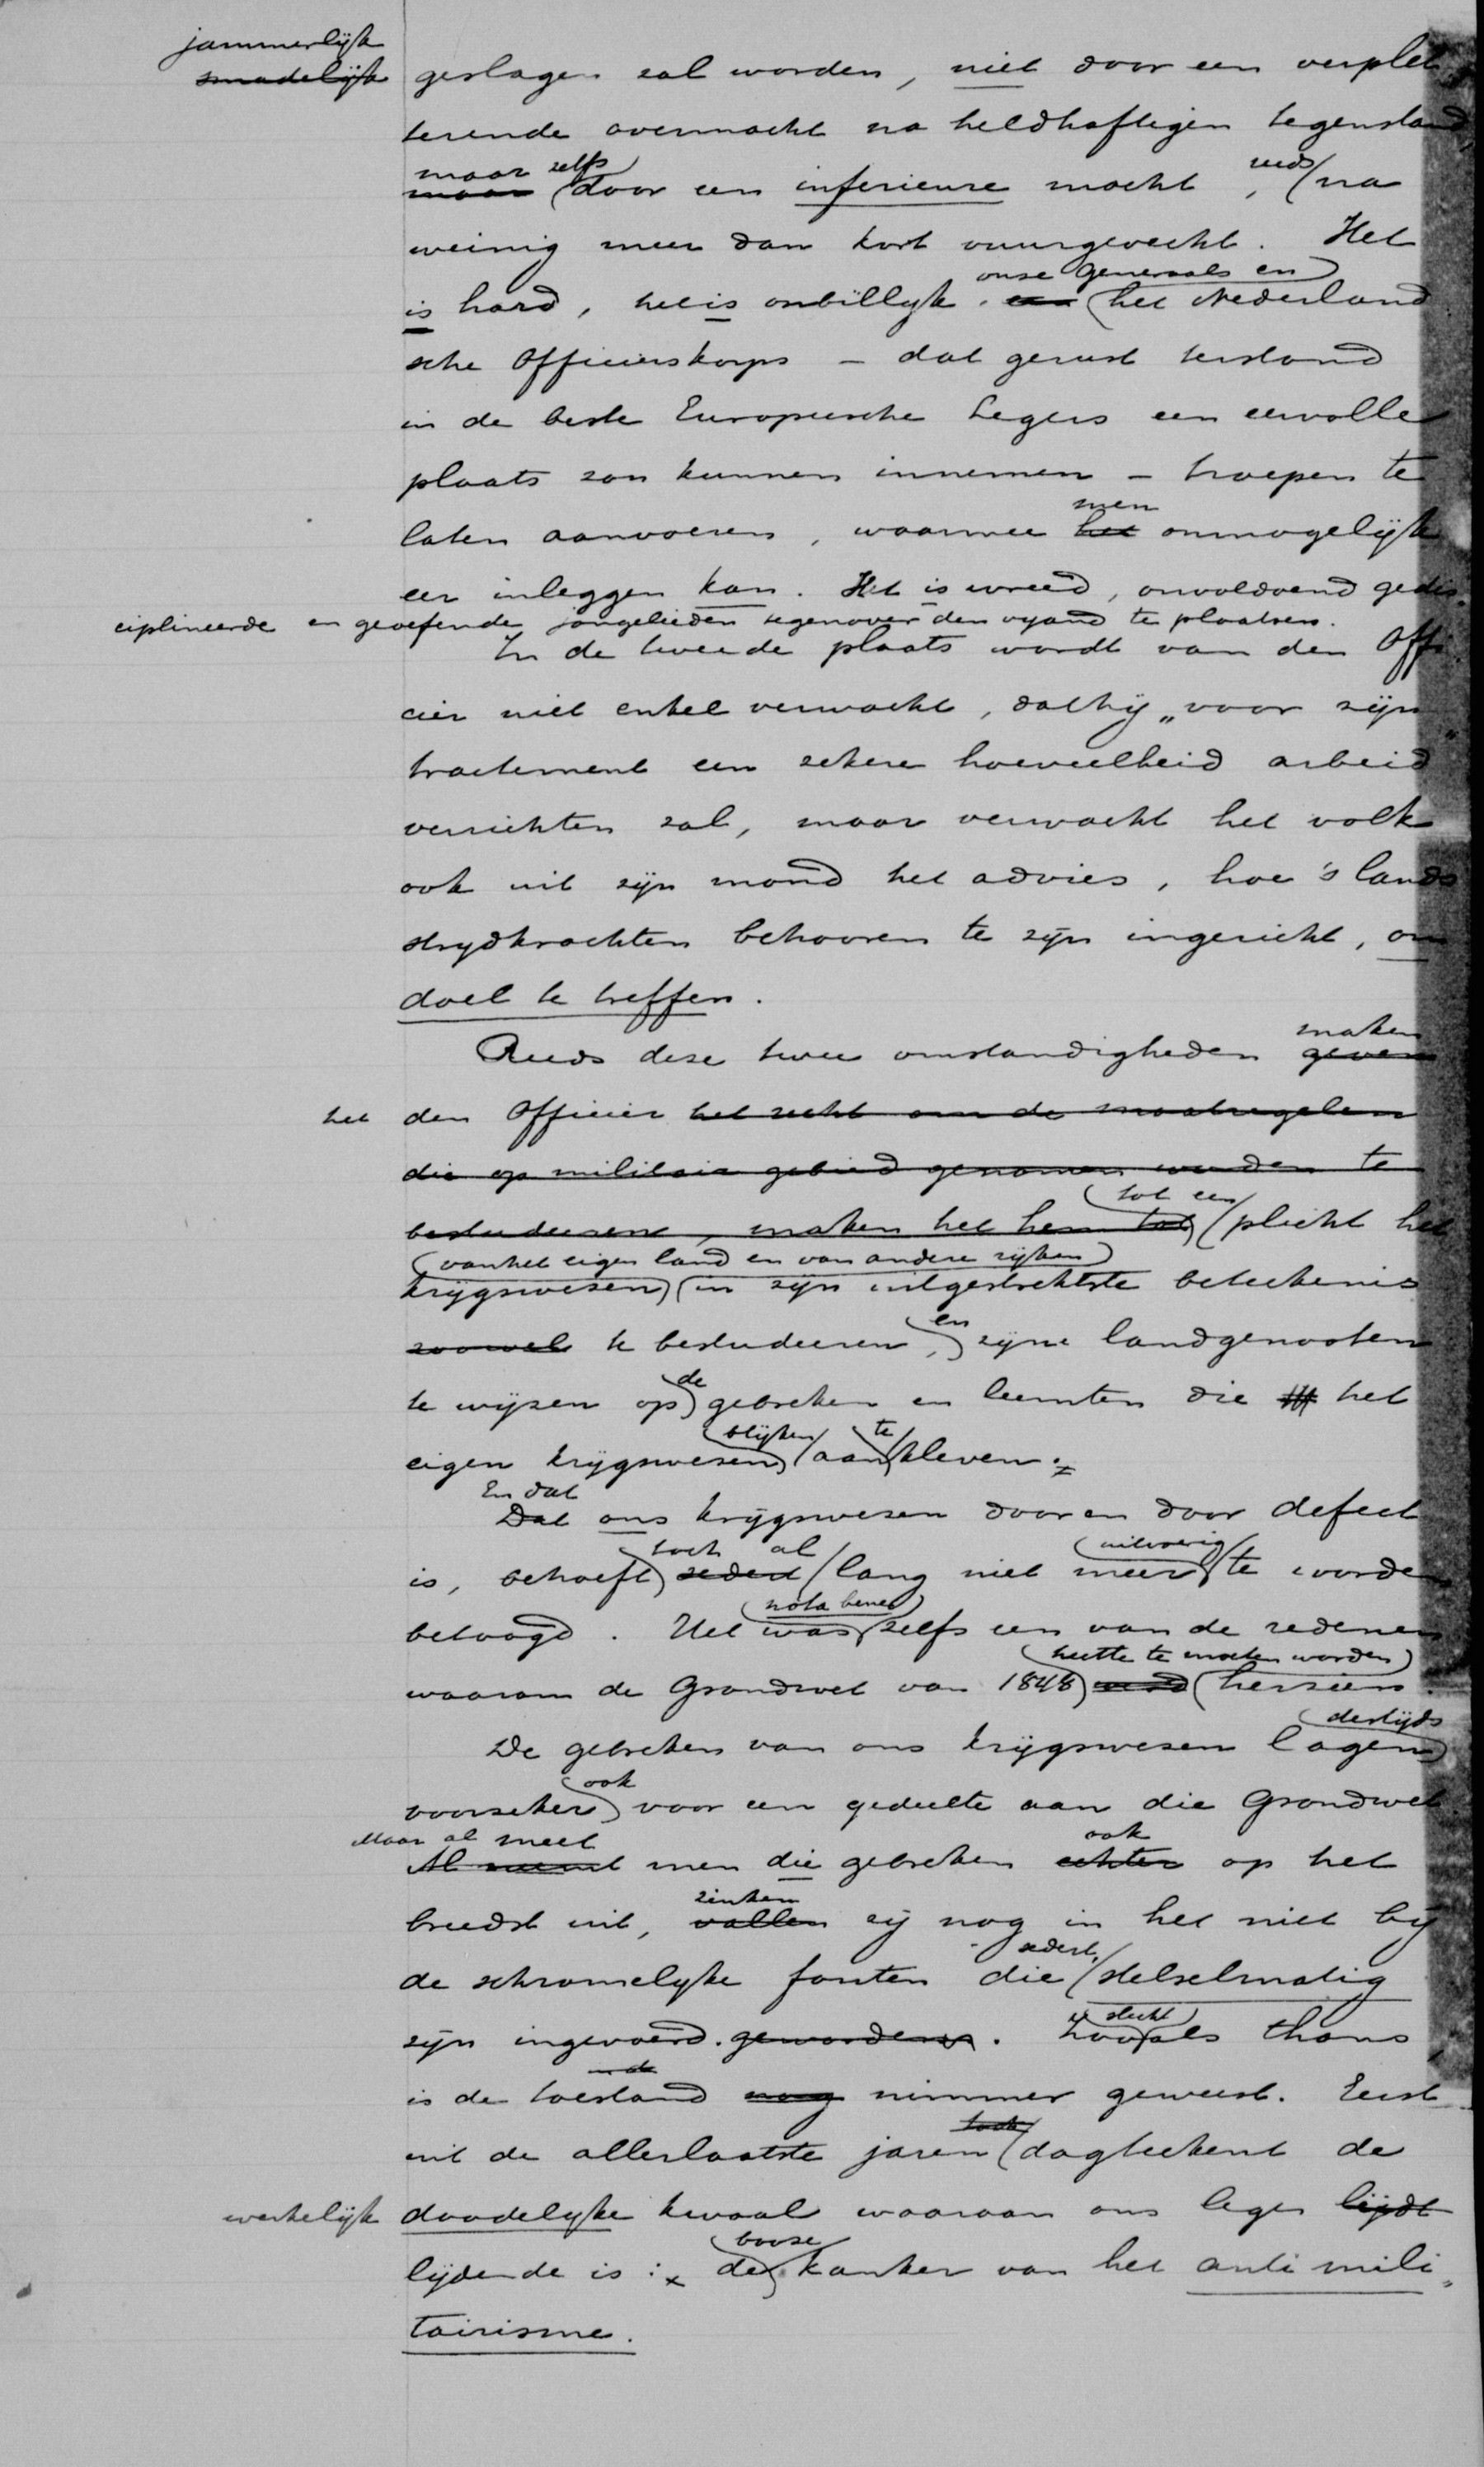 jammerlijk
smadelijk geslagen zal worden, niet door een verplet
terende overmacht na heldhaftigen tegenstand,
maar zelfs reeds
maar door een inferieure macht, na
weinig meer dan kort vuurgevecht. Het
onze Generaals en
is hard, het is onbillijk, het Nederland
sche Officierskorps – dat gerust terstond
in de beste Europeesche Legers een eervolle
plaats zou kunnen innemen – troepen te
men
laten aanvoeren, waarmee het onmogelijk
eer inleggen kan. Het is wreed, onvoldoend gedis
ciplineerde en geoefende jongelieden tegenover den vyand te plaatsen.
In de tweede plaats wordt van den Offi
cier niet enkel verwacht, dat hij „voor zijn
tractement een zekere hoeveelheid arbeid"
verrichten zal, maar verwacht het volk
ook uit zijn mond het advies, hoe 's lands
strydkrachten behooren te zijn ingericht, om
doel te treffen.
maken
Reeds deze twee omstandigheden geven
het den Officier het recht om de maatregelen
die op militair gebied genomen worden te
tot een
bestudeeren, maken het hem tot plicht het
van het eigen land en van andere rijken
krijgswezen in zijn uitgestrektste beteekenis
en
zoowel te bestudeeren, zijne landgenooten
de
te wijzen op gebreken en leemten die het
blijken te
eigen krijgswezen aankleven.
En dat
Dat ons krijgswezen door en door defect
toch al uitvoerig
is, behoeft sedert lang niet meer te worden
nota bene
betoogd. Het was zelfs een van de redenen
heette te moeten worden
waarom de Grondwet van 1848 werd herzien.
destijds
De gebreken van ons krijgswezen lagen
ook
voorzeker voor een gedeelte aan die Grondwet.
Maar al meet ook
Al meet men die gebreken echter op het
zinken
breedst uit, vallen zij nog in het niet bij
sedert
de schromelyke fouten die stelselmatig
slecht
zijn ingevoerd geworden. Zooals thans
is de toestand nog nimmer geweest. Eerst
toch
uit de allerlaatste jaren dagteekent de
werkelijk doodelyke kwaal waaraan ons leger lijdt
booze
lijdende is: de kanker van het anti mili
tairisme.